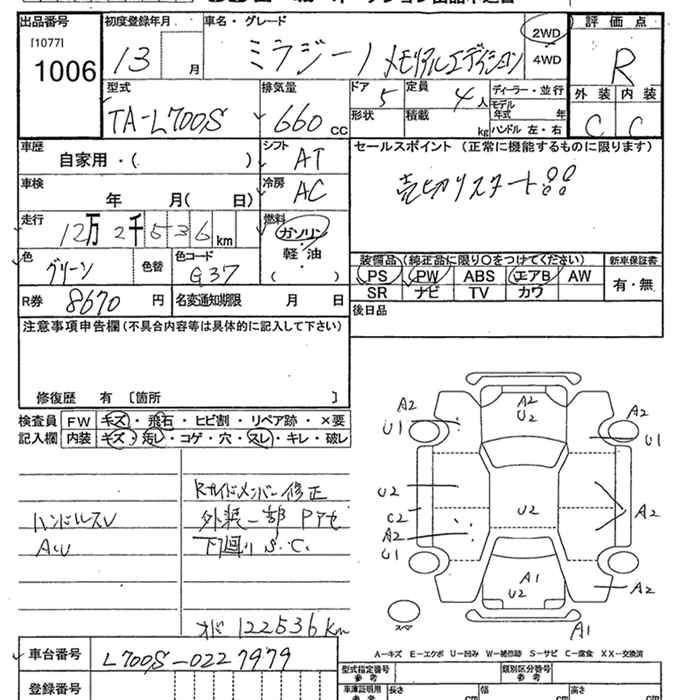 出品番号
[1077]
1006
初度登録年月
13 月
車名・グレード
ミラジーノ メモリアルエディション
2WD
4WD
評価点
R
外装 内装
C C
型式
TA-L700S
排気量
660 cc
ドア 5
形状
定員 4人
積載 kg
ディーラー・並行
モデル年式 年
ハンドル 左・右
車歴
自家用・( )
シフト
AT
セールスポイント (正常に機能するものに限ります)
売切りスタート!!
車検
年 月( 日)
冷房
AC
走行
12万2千536km
燃料
ガソリン
軽油
( )
色
グリーン
色替
色コード
G37
装備品 (純正品に限り○をつけてください)
PS PW ABS エアB AW
SR ナビ TV カワ
新車保証書
有・無
R券 8670 円
名変通知期限 月 日
後日品
注意事項申告欄(不具合内容等は具体的に記入して下さい)
修復歴 有 〔箇所 〕
検査員 FW キズ・飛石・ヒビ割・リペア跡・×要
記入欄 内装 キズ・汚レ・コゲ・穴・スレ・キレ・破レ
Rサイドメンバー修正
ハンドルスレ
外装一部
下回りS.C.
オド 122536km
A2
U1
A2
U2
A2
U1
U2
C2
A2
U1
U2
A2
A1
U2
A2
スペア
A1
A－キズ E－エクボ U－凹み W－補修跡 S－サビ C－腐食 XX－交換済
車台番号 L700S-0227979
登録番号
型式指定番号
参考
類別区分番号
参考
車庫証明用
参考
長さ cm
幅 cm
高さ cm